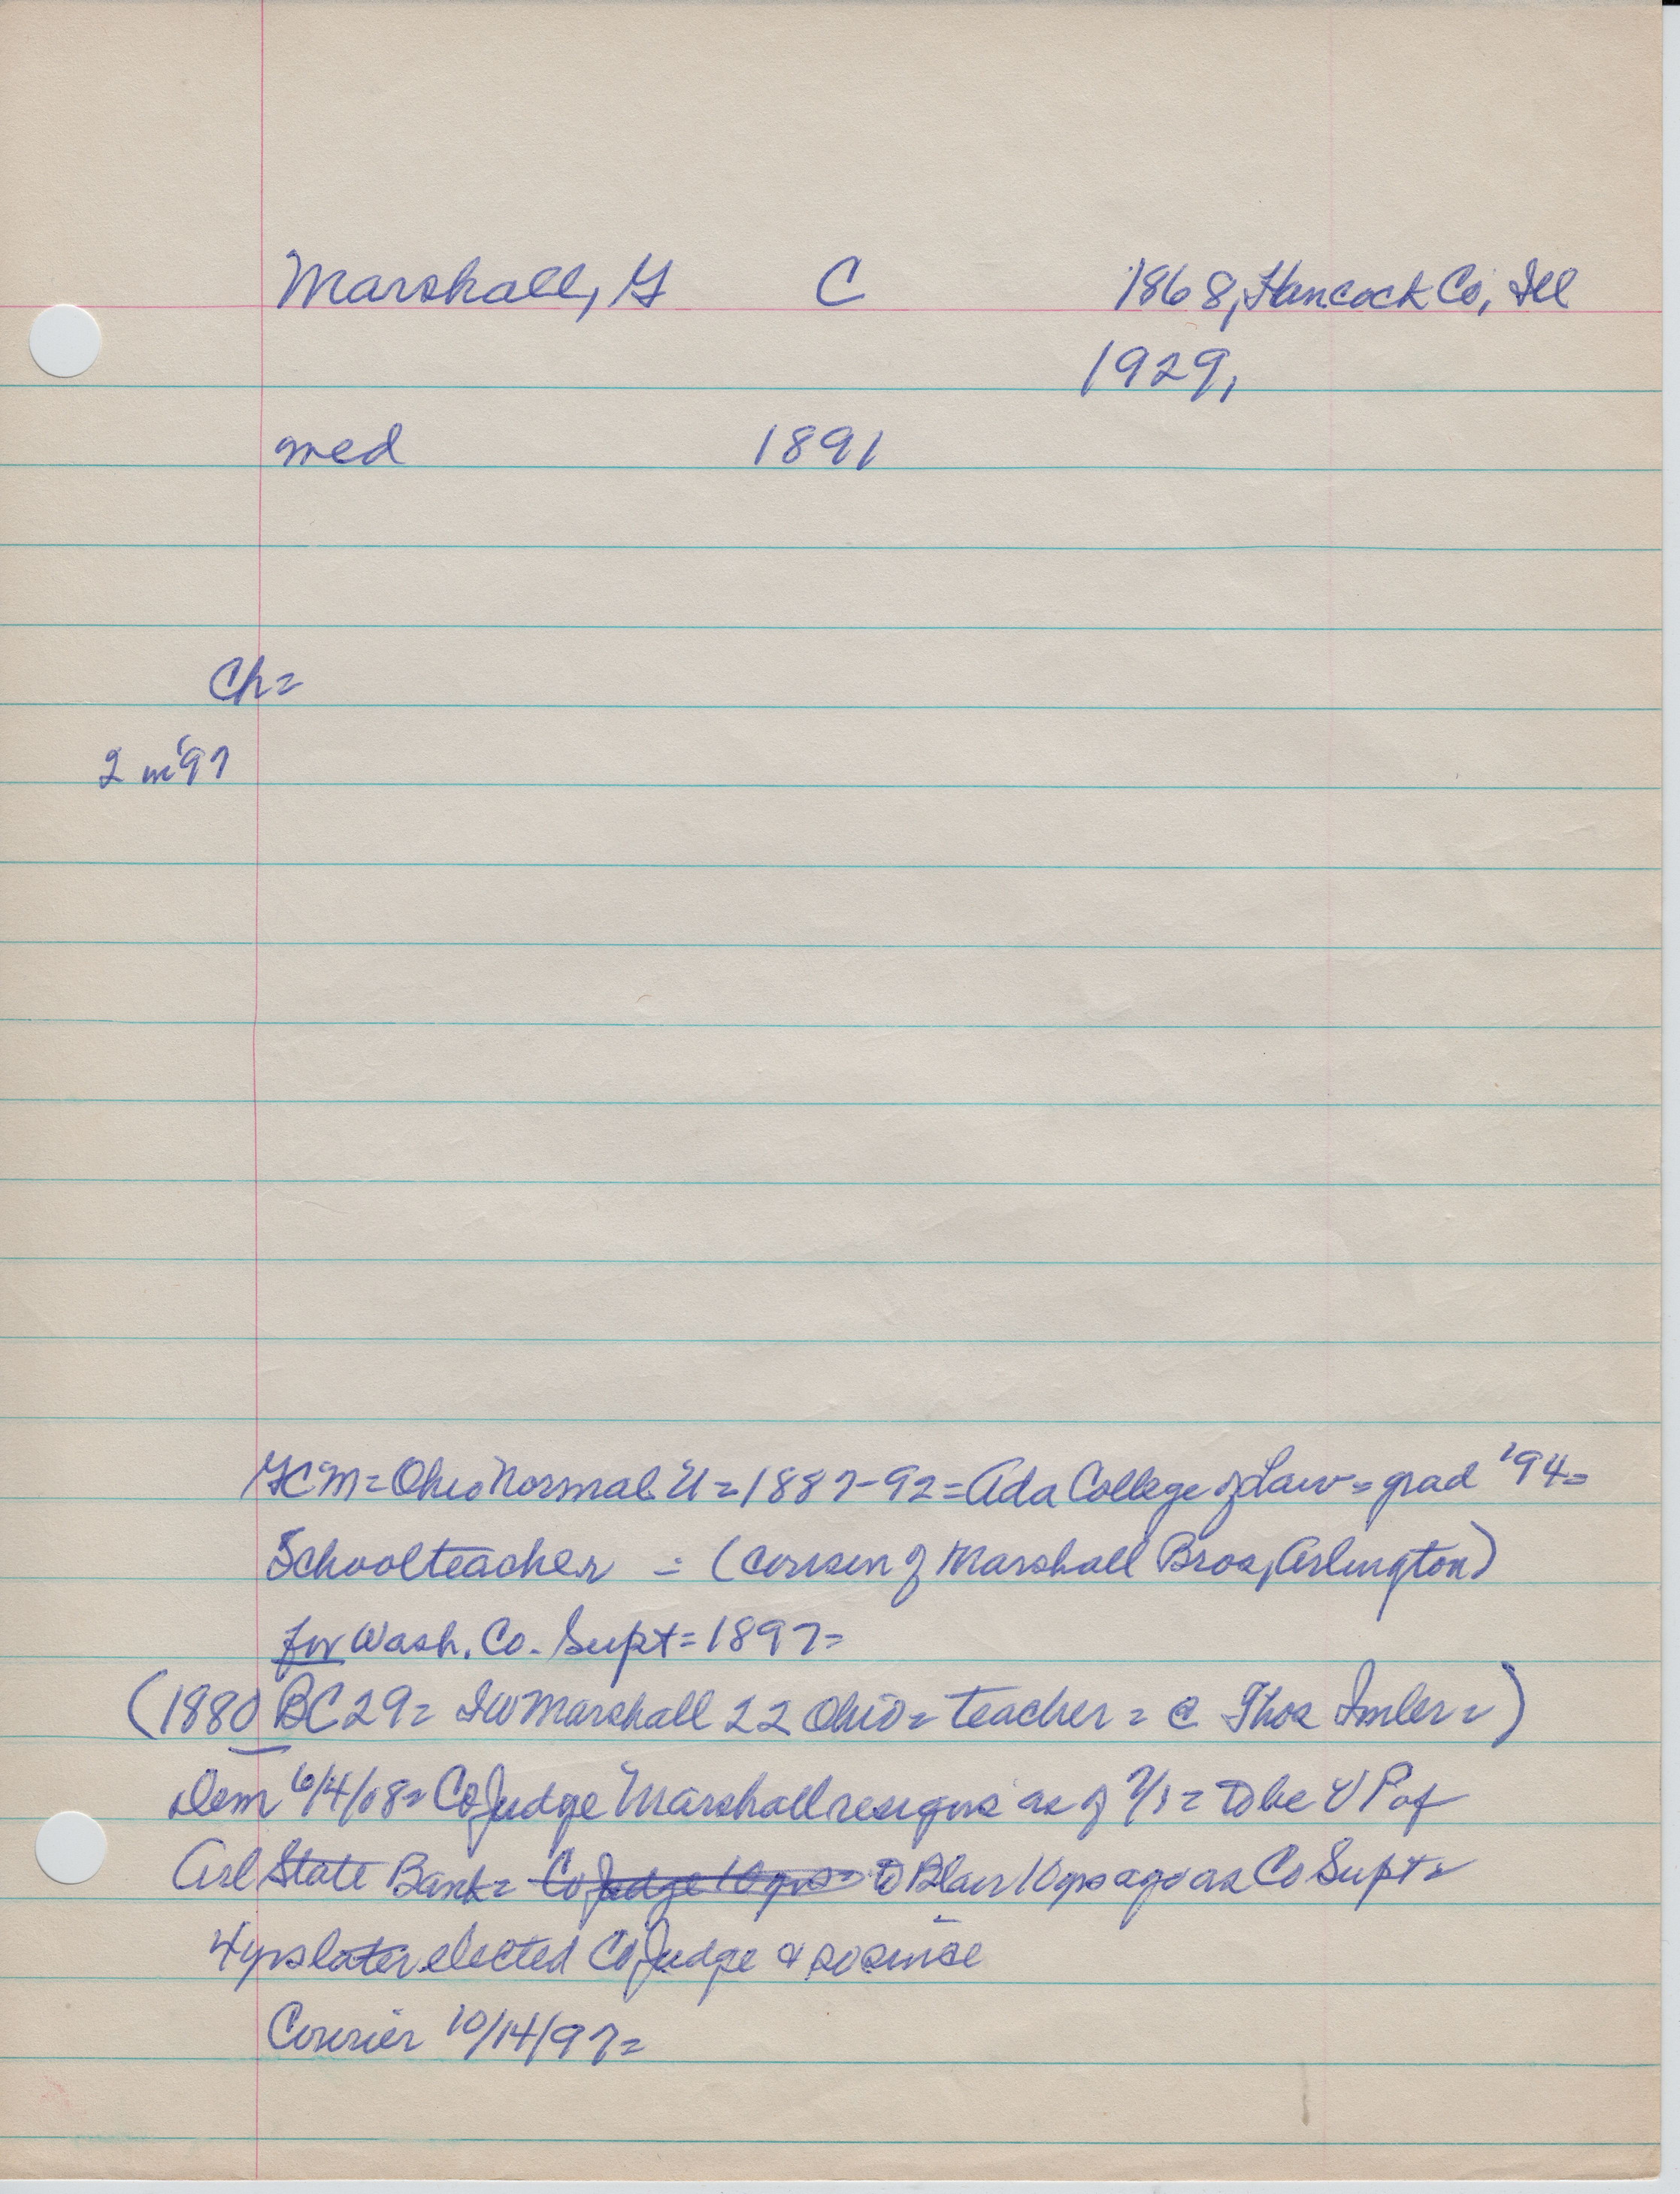 Marshall, G C 1868, Hancock Co, Ill
1929,
med 1891
Ch=
2 in '97
GCM= Ohio Normal U = 1887-92 = Ada College of Law = grad '94=
Schoolteacher = (cousin of Marshall Bros, Arlington)
for Wash. Co. Supt = 1897=
(1880 BC 29= IW Marshall 22 Ohio = teacher = c Thos Imler =)
Dem 6/4/08= Co Judge Marshall resigns as of 7/1 = To be VP of
Arl State Bank= Co Judge 10 yrs= to Blair 10 yrs ago as Co Supt=
4 yrs later elected Co Judge & so since
Courier 10/14/97=